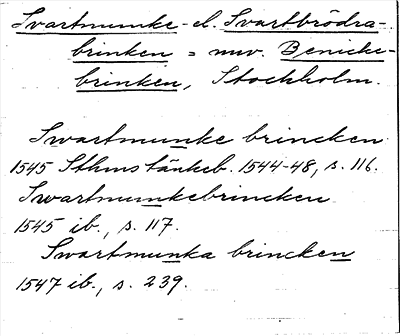 Svartmunke- el. Svartbrödra-
brinken = nuv. Benicke-
brinken, Stockholm.
Swartmunke brincken
1545 Sthms tänkeb. 1544-48, s. 116.
Swartmunkebrincken
1545 ib., s. 117.
Svartmunka brincken
1547 ib., s. 239.